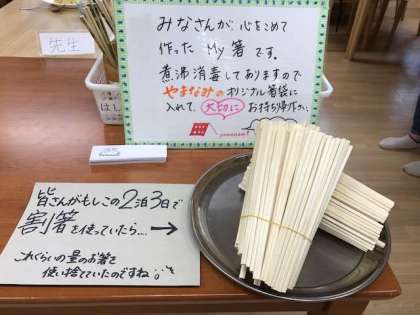 先生
みなさんが、心をこめて
作った My箸 です。
煮沸消毒してありますので
やまなみのオリジナル箸袋に
入れて、大切に お持ち帰り下さい。
yamanami
はし
皆さんがもしこの2泊3日で
割箸を使っていたら… →
これくらいの量のお箸を
使い捨てていたのですね